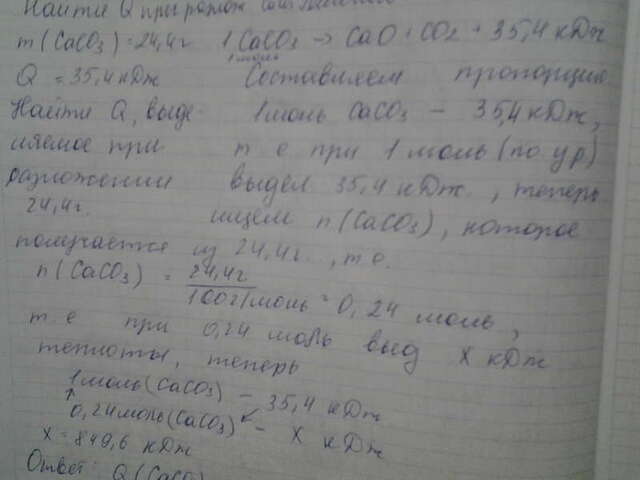 Найти Q при разлож
m(CaCO3)=24,4г 1CaCO3 → CaO+CO2+35,4 кДж
1 моль
Q = 35,4 кДж Составляем пропорцию
Найти Q, выде- 1 моль CaCO3 – 35,4 кДж,
ляемое при т е при 1 моль (по ур)
разложении выдел 35,4 кДж., теперь
24,4г. ищем n(CaCO3), которое
получается из 24,4г., т.е.
n(CaCO3) = 24,4г / 100г/моль = 0,24 моль,
т.е при 0,24 моль выд X кДж
теплоты, теперь
1моль(CaCO3) – 35,4 кДж
0,24моль(CaCO3) – X кДж
X = 849,6 кДж
Ответ: Q(CaCO